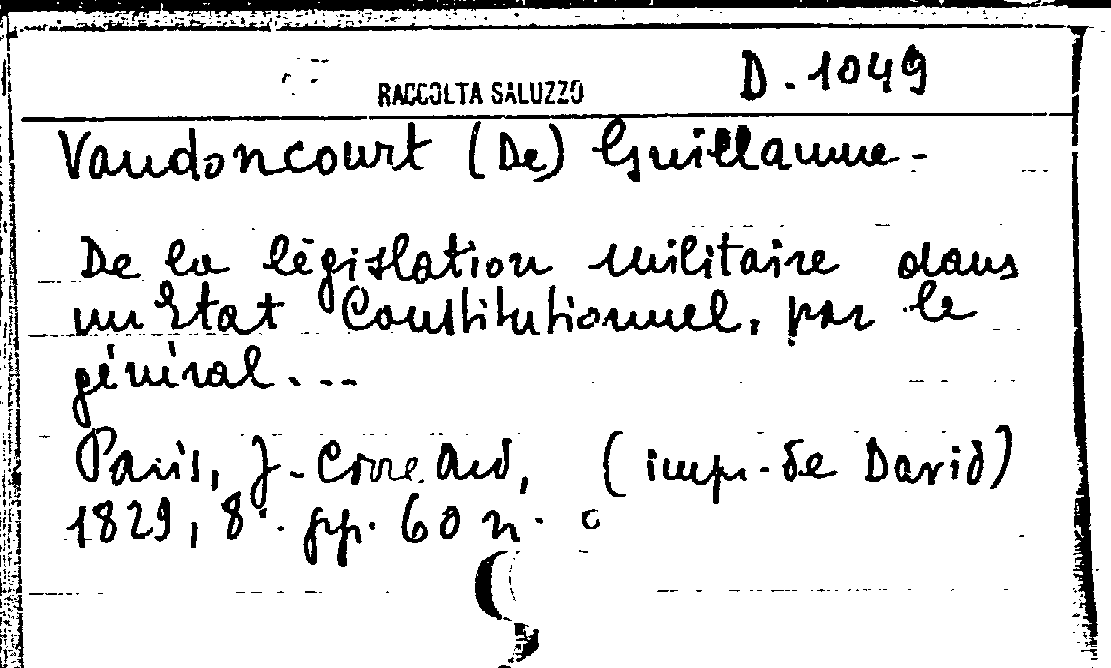 D. 1049
RACCOLTA SALUZZO
Vaudoncourt (De) Guillaume -
De la législation militaire dans
un Etat Constitutionnel, par le
général ...
Paris, J. Corréard, (impr. de David)
1829, 8°. pp. 60 n.